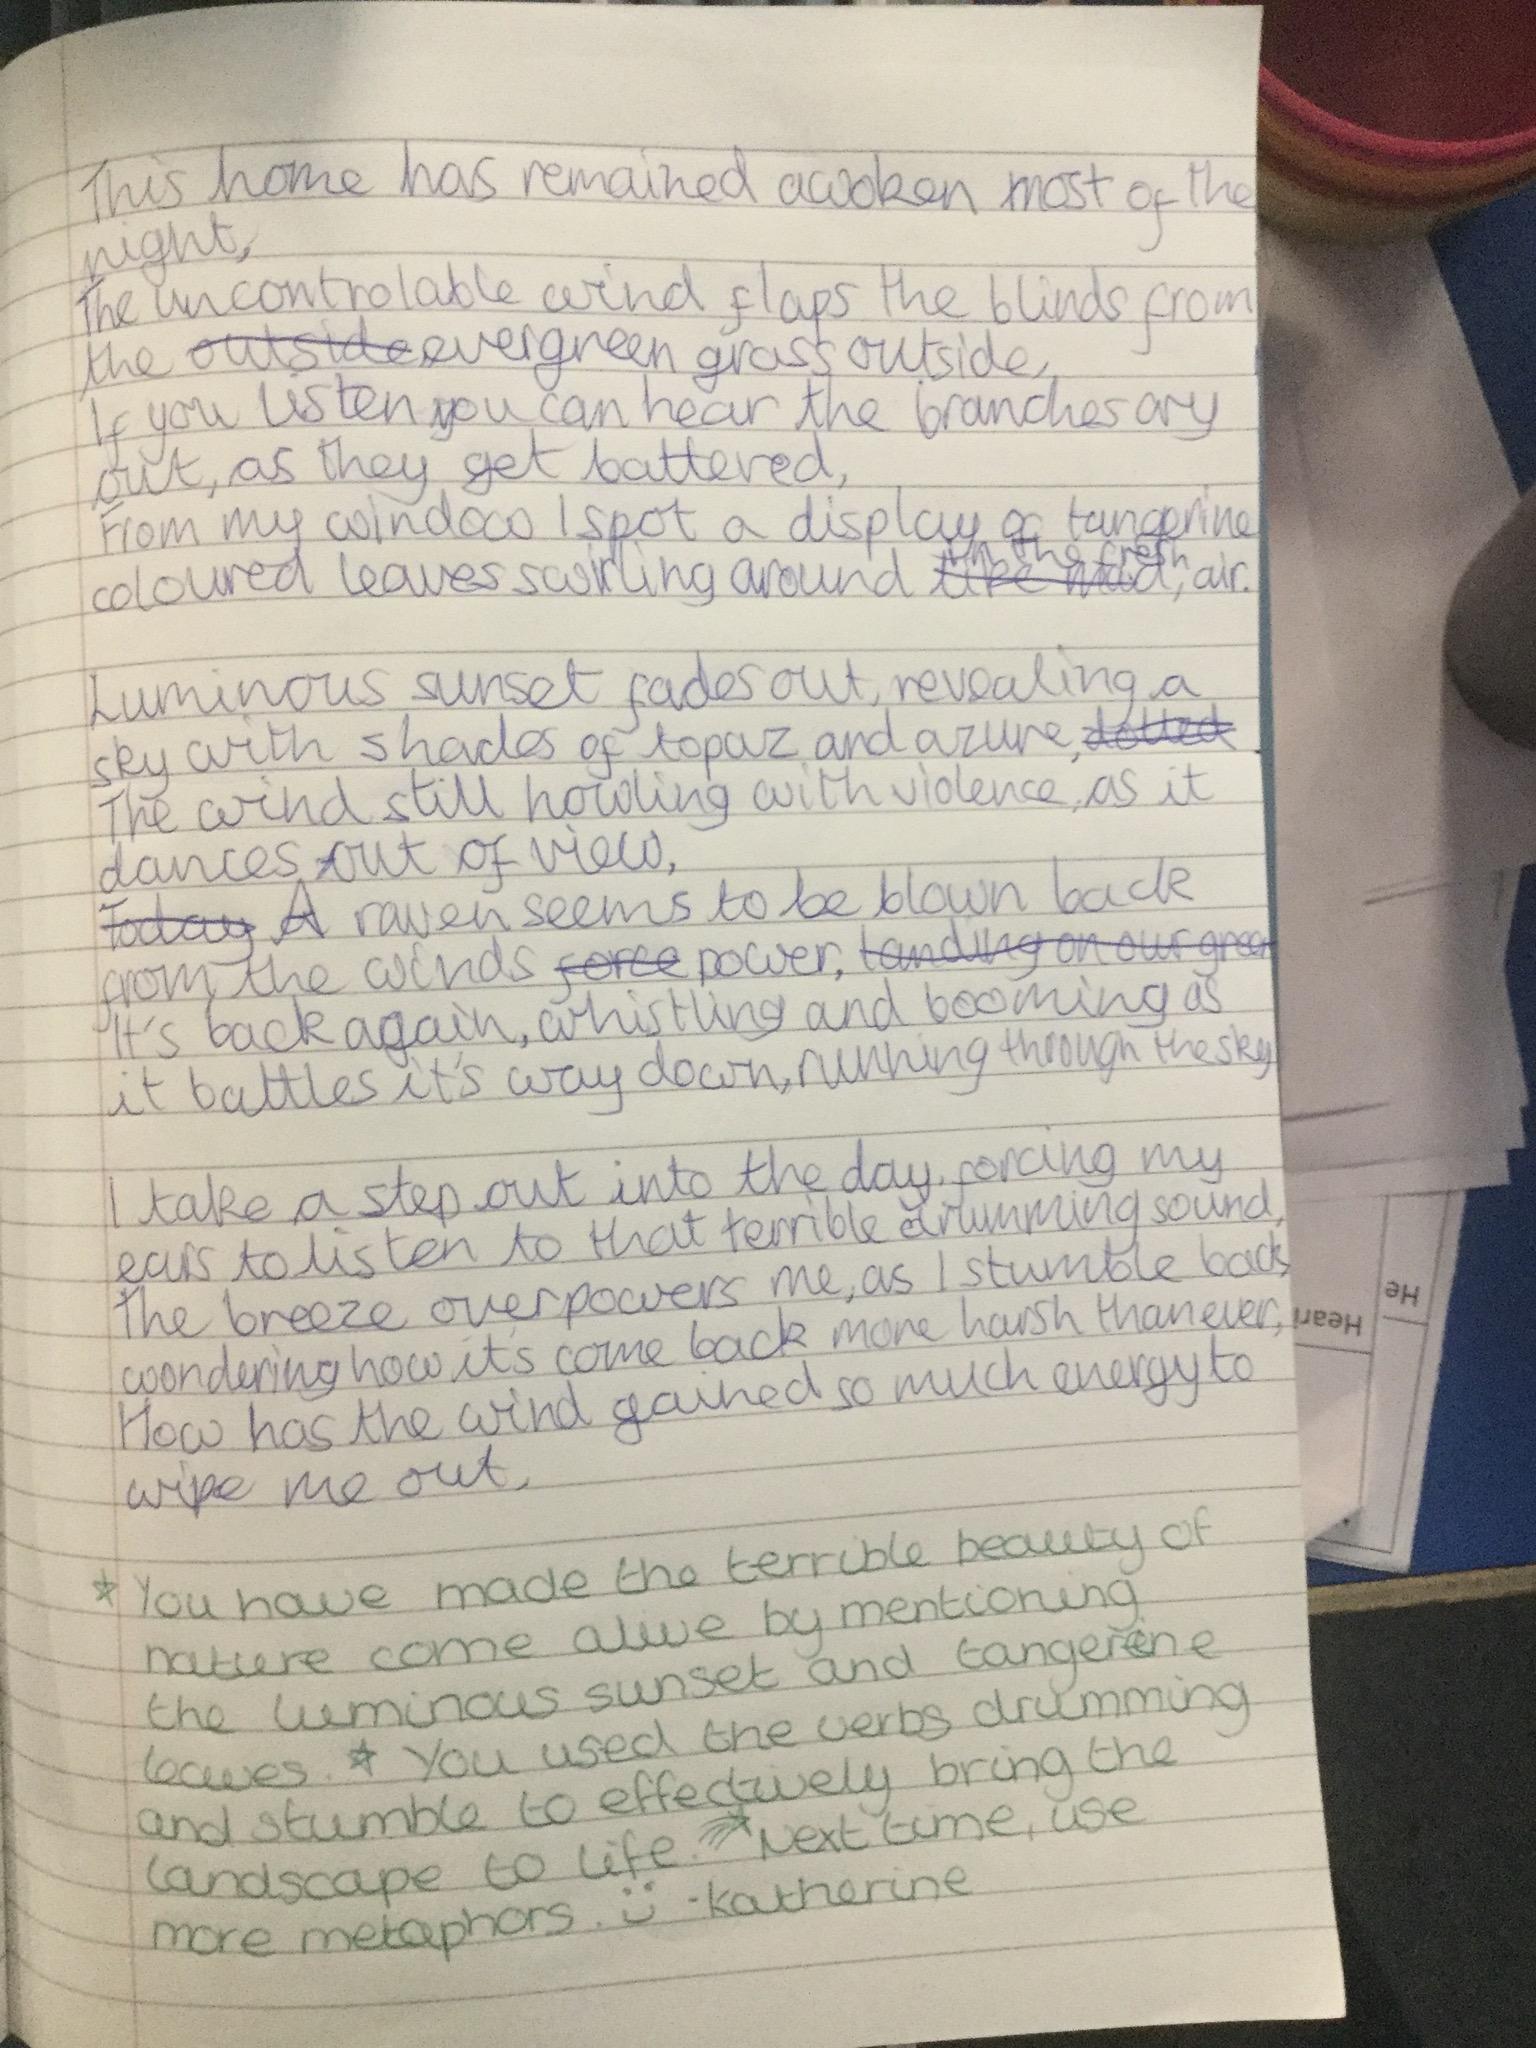 This home has remained awoken most of the
night,
The uncontrolable wind flaps the blinds from
the outside evergreen grass outside,
If you listen you can hear the branches cry
out, as they get battered,
From my window I spot a display of tangerine
in the fresh
coloured leaves swirling around like mad, air.
Luminous sunset fades out, revealing a
sky with shades of topaz and azure, dotted
The wind still howling with violence, as it
dances out of view,
Today A raven seems to be blown back
from the winds force power, landing on our green
It's back again, whistling and booming as
it battles it's way down, running through the sky
I take a step out into the day, forcing my
ears to listen to that terrible drumming sound,
The breeze overpowers me, as I stumble back
wondering how it's come back more harsh than ever,
How has the wind gained so much energy to
wipe me out,
* You have made the terrible beauty of
nature come alive by mentioning
the luminous sunset and tangerine
leaves. * You used the verbs drumming
and stumble to effectively bring the
landscape to life. Next time, use
more metaphors. :) -Katherine
He
Heari